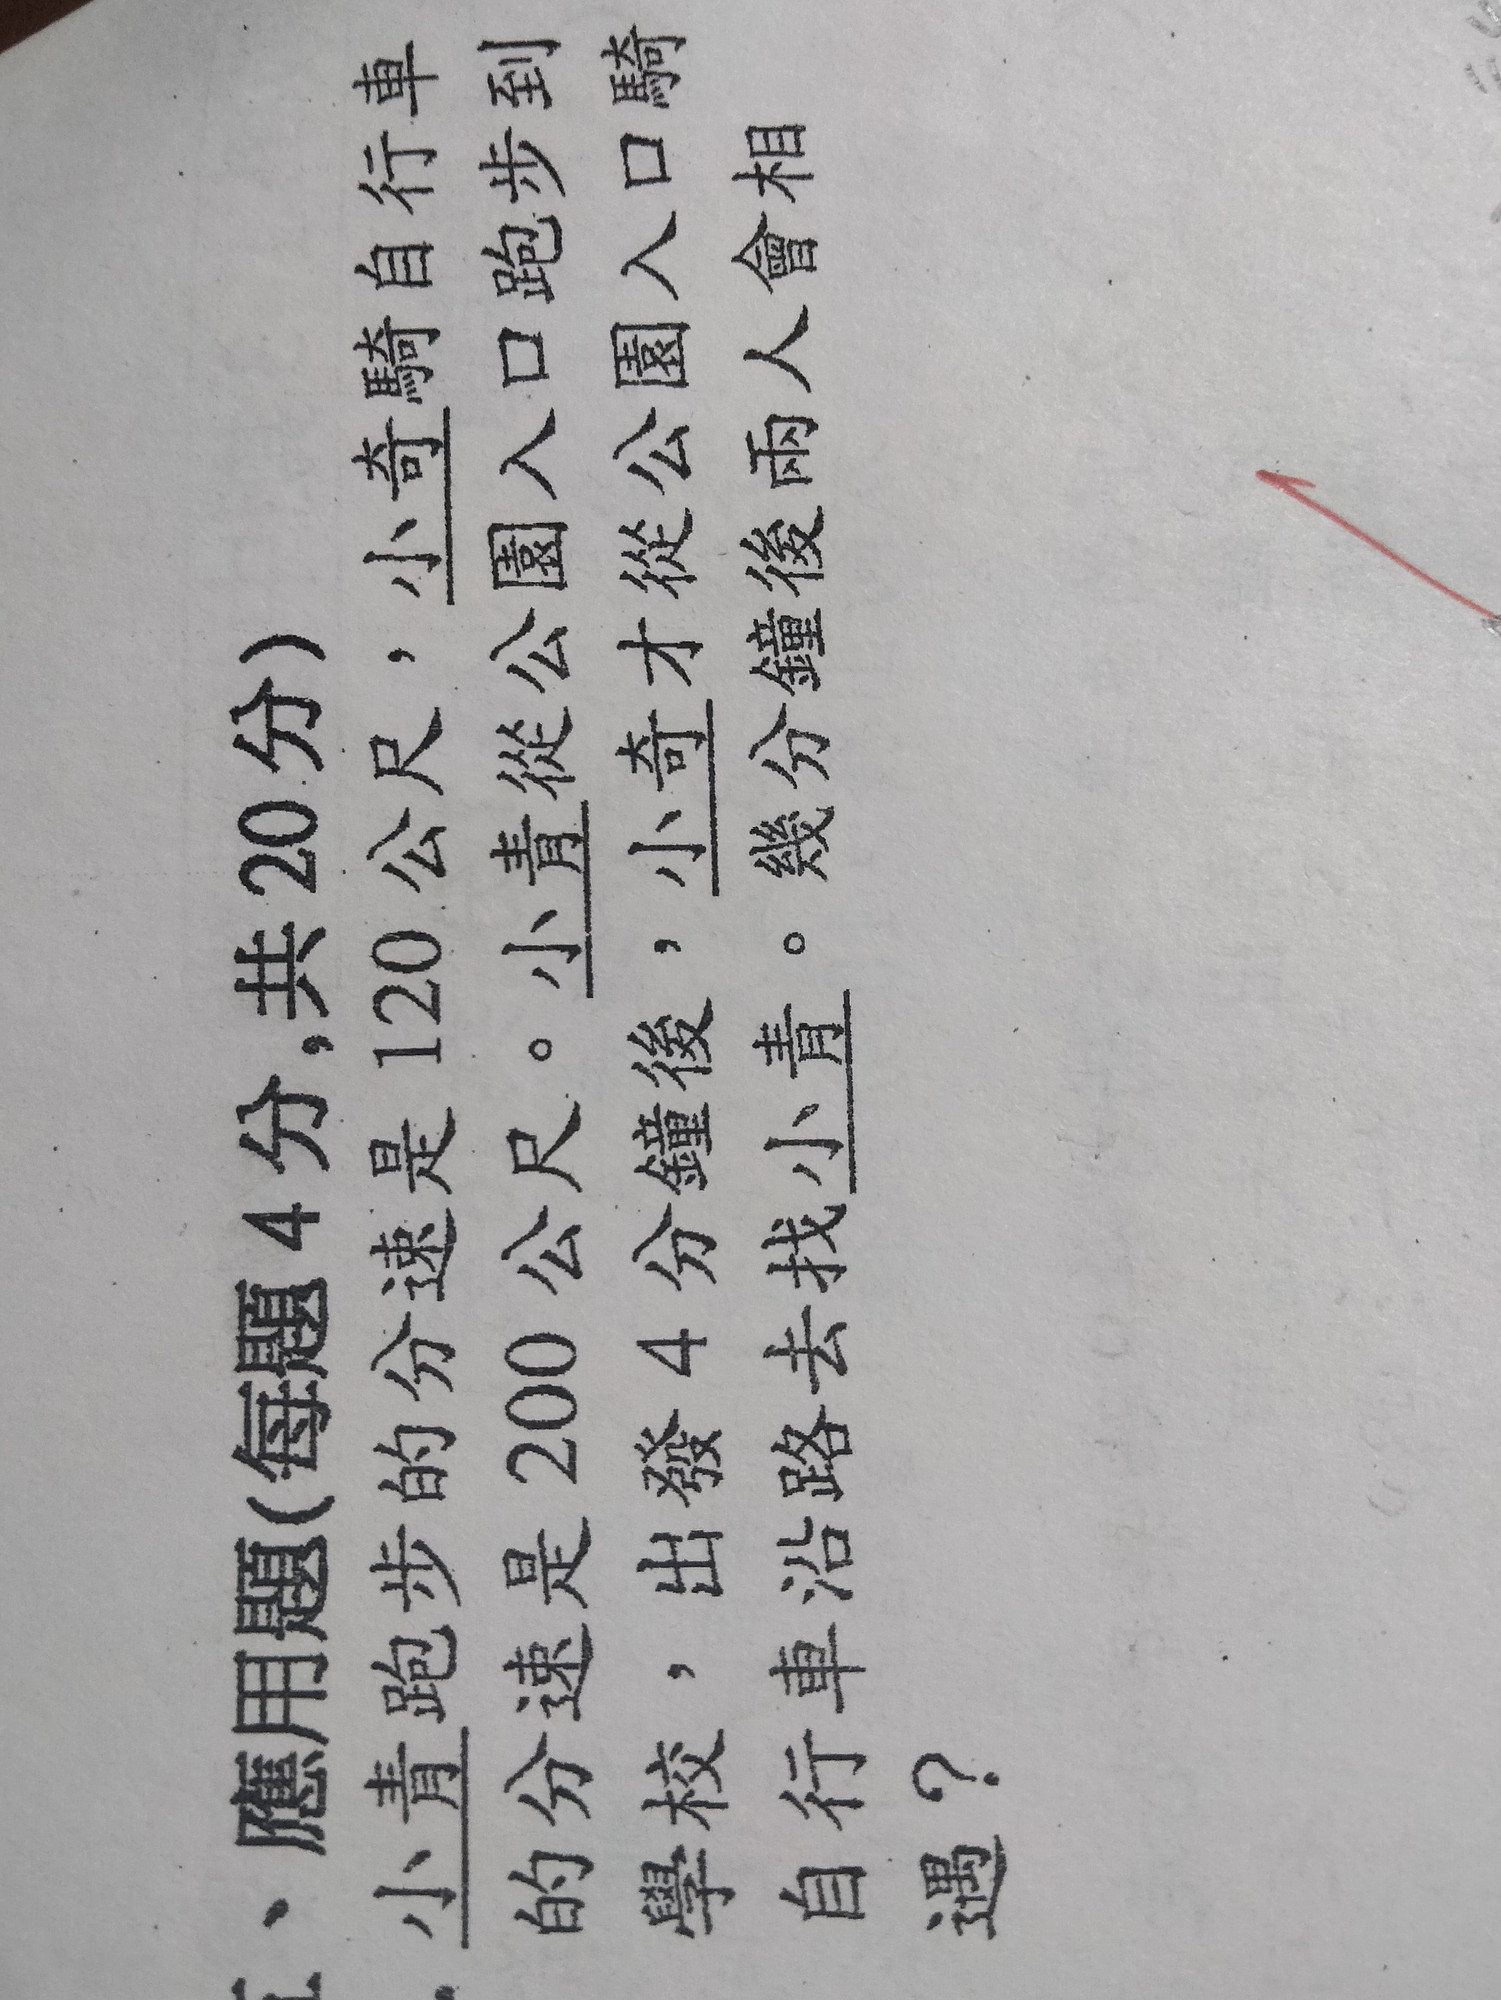 、應用題(每題 4 分,共 20 分)
小青跑步的分速是 120 公尺，小奇騎自行車
的分速是 200 公尺。小青從公園入口跑步到
學校，出發 4 分鐘後，小奇才從公園入口騎
自行車沿路去找小青。幾分鐘後兩人會相
遇？